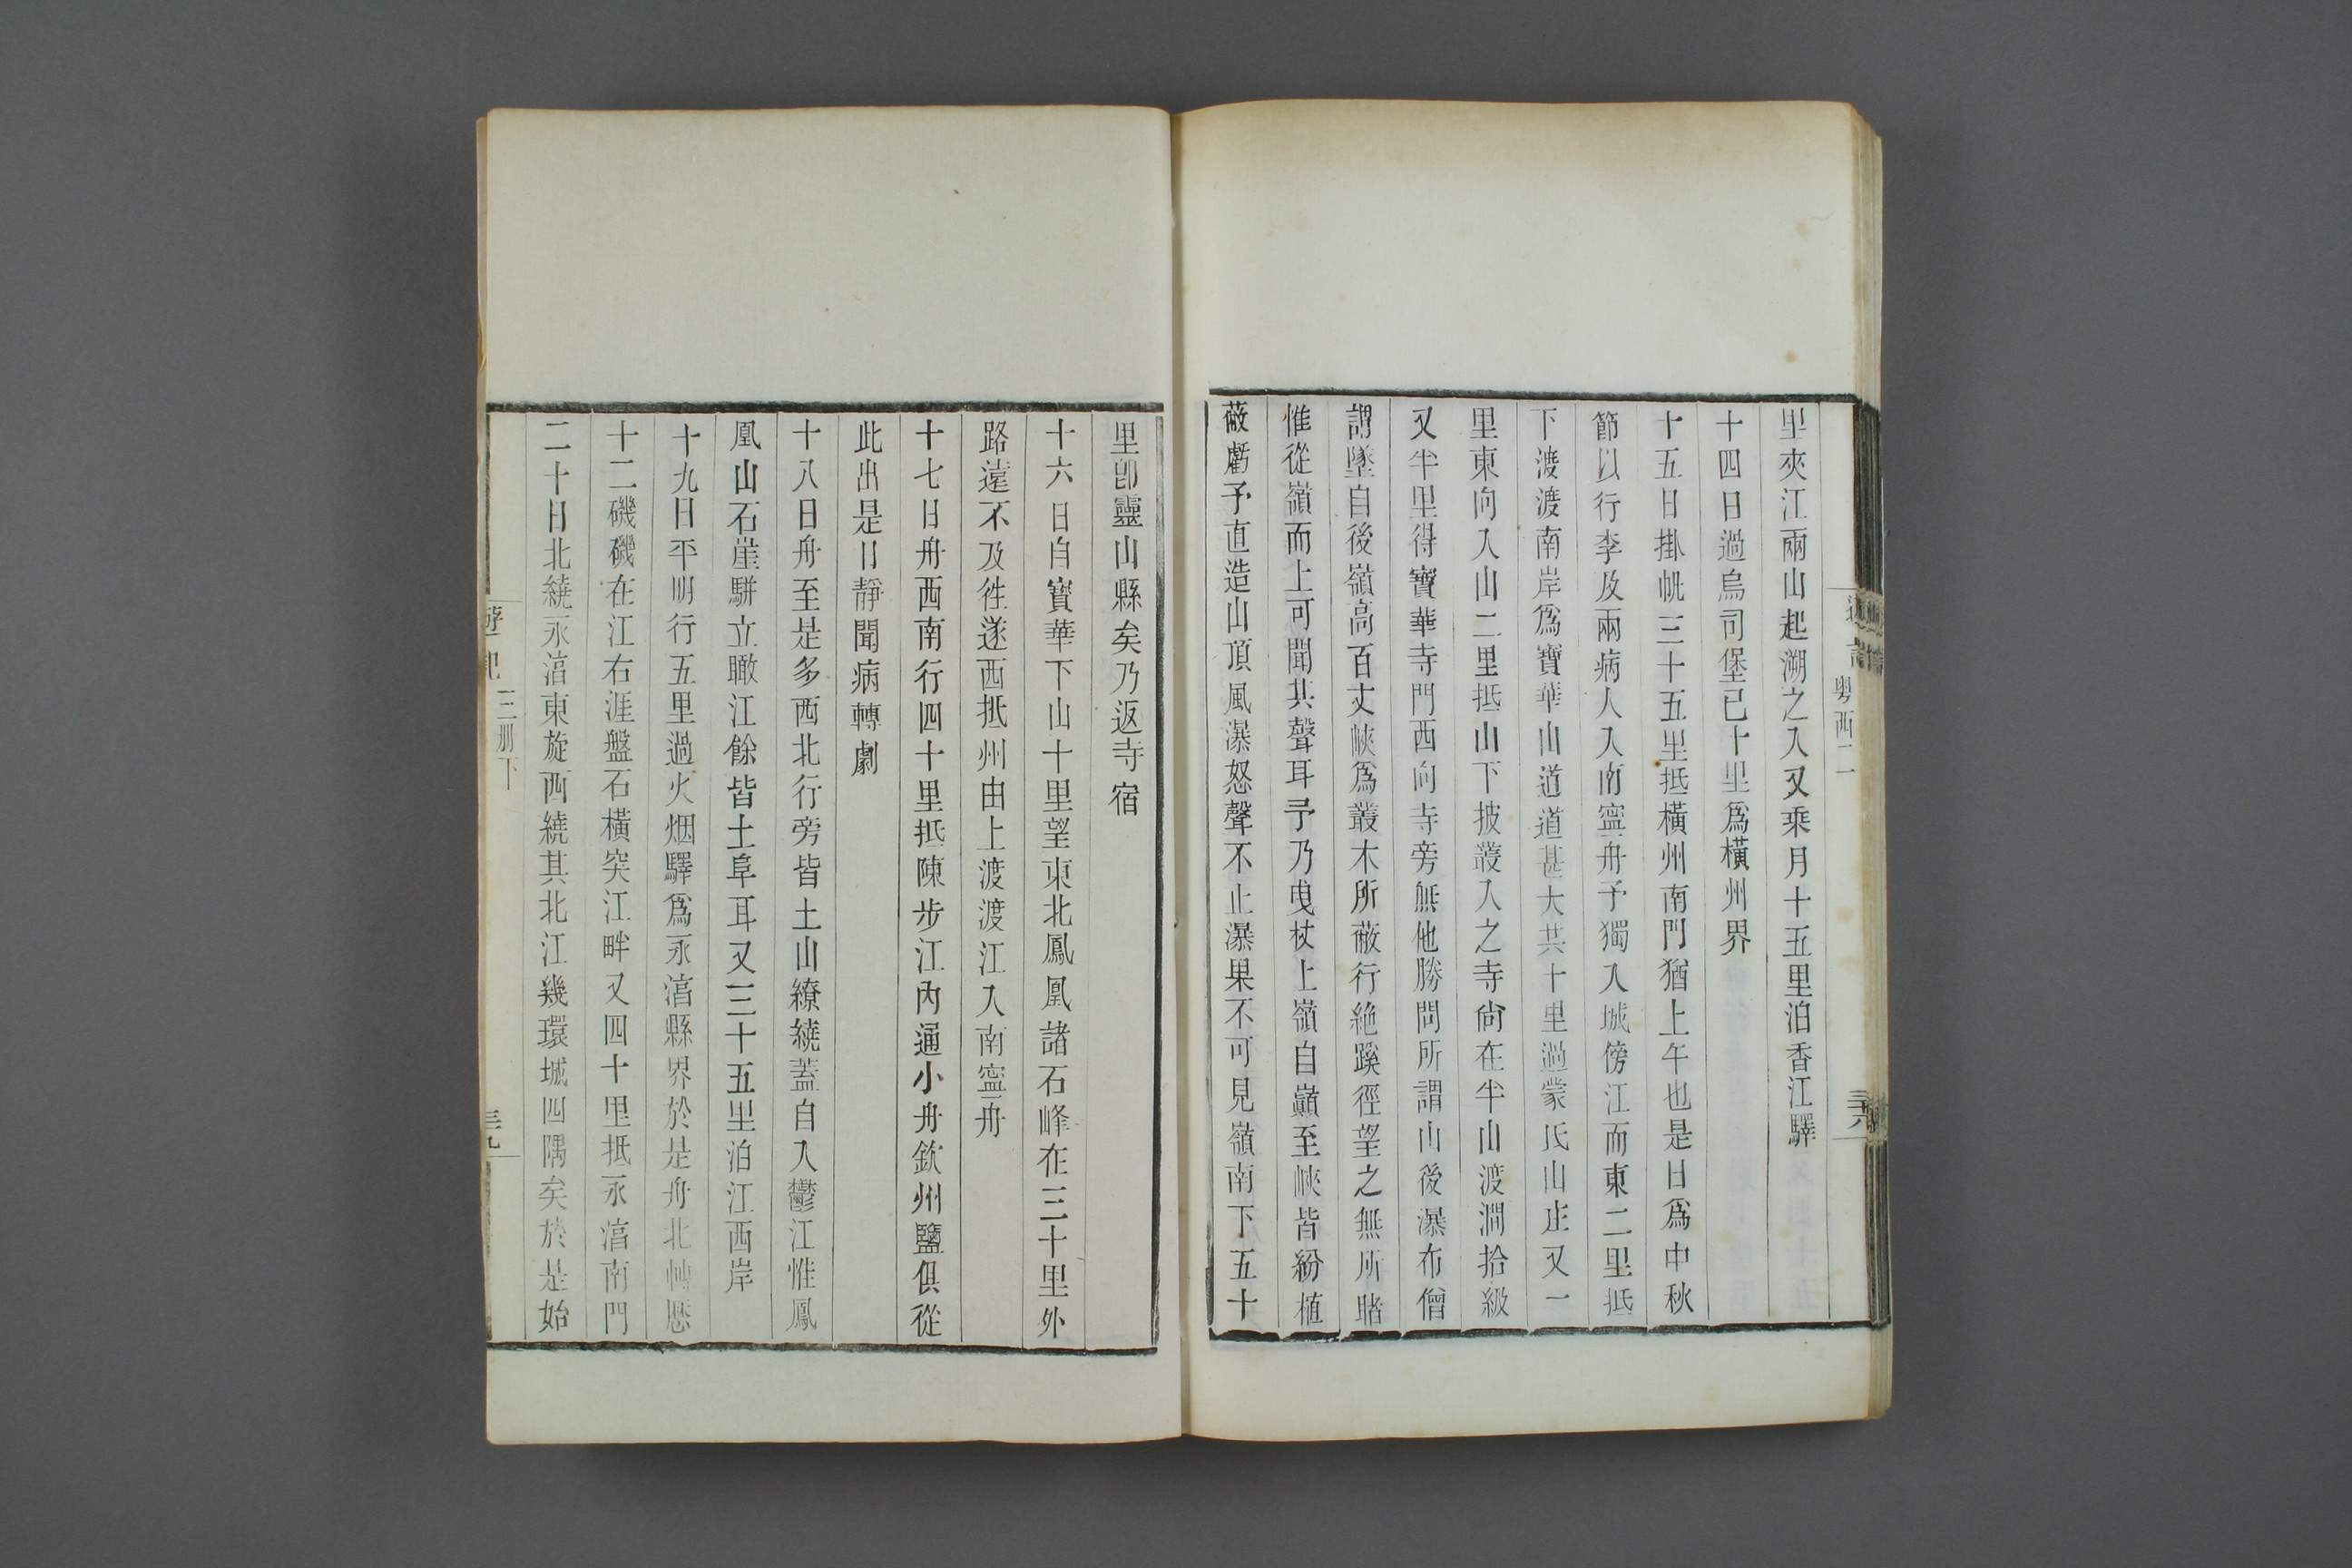 粤西二
里夾江兩山起溯之入又乘月十五里泊香江驛
十四日過烏司堡已十里爲橫州界
十五日掛帆三十五里抵橫州南門猶上午也是日爲中秋
節以行李及兩病人入南寧舟予獨入城傍江而東二里抵
下渡渡南岸爲寶華山道道甚大共十里過蒙氏山庄又一
里東向入山二里抵山下披叢入之寺尙在半山渡澗拾級
又半里得寶華寺門西向寺旁無他勝問所謂山後瀑布僧
謂墜自後嶺高百丈峽爲叢木所蔽行絶蹊徑望之無所睹
惟從嶺而上可聞其聲耳予乃曳杖上嶺自巔至峽皆紛植
蔽虧予直造山頂風瀑怒聲不止瀑果不可見嶺南下五十
里卽靈山縣矣乃返寺宿
十六日自寶華下山十里望東北鳳凰諸石峰在三十里外
路遠不及徃遂西抵州由上渡渡江入南寧舟
十七日舟西南行四十里抵陳步江內通小舟欽州鹽俱從
此出是日靜聞病轉劇
十八日舟至是多西北行旁皆土山繚繞蓋自入鬱江惟鳳
凰山石崖駢立瞰江餘皆土阜耳又三十五里泊江西岸
十九日平明行五里過火烟驛爲永淳縣界於是舟北轉歷
十二磯磯在江右涯盤石橫突江畔又四十里抵永淳南門
二十日北繞永淳東旋西繞其北江幾環城四隅矣於是始
遊記 三册下